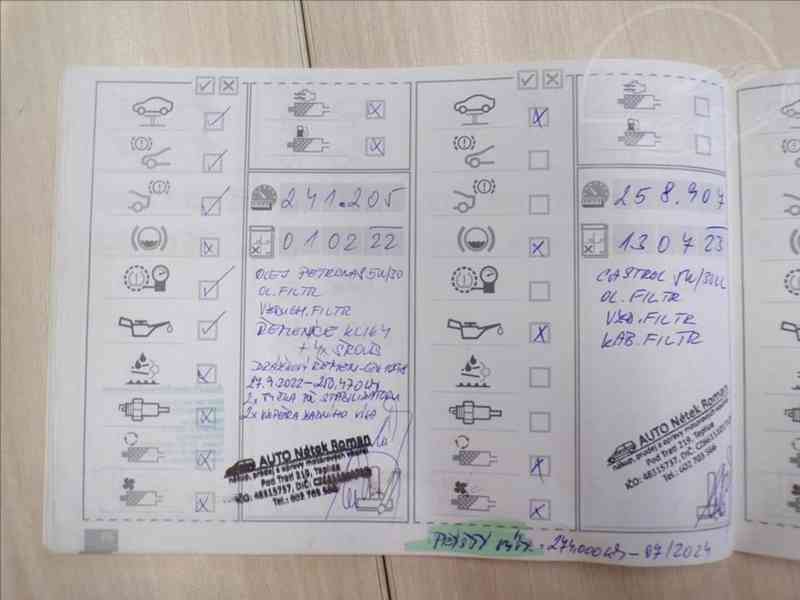 241.205
01 02 22
OLEJ PETRONAS 5W/30
OL. FILTR
VZDUCH. FILTR
ŘEMENICE KLIKY
+ 4x ŠROUB
27.9.2022 - 250.470
2x TYČKA ZA STABILIZÁTORU
2x VZPĚRA ZADNÍHO VÍKA
AUTO Nátek Roman
nákup, prodej a opravy motorových vozidel
Pod Tratí 219, Teplice
IČO: 48315737, DIČ:
Tel.: 602 705 566
258.907
13 07 23
CASTROL 5W/30LL
OL. FILTR
VZD. FILTR
KAB. FILTR
AUTO Nátek Roman
nákup, prodej a opravy motorových vozidel
Pod Tratí 219, Teplice
IČO: 48315737, DIČ:
Tel.: 602 705 566
PŘÍŠTÍ VÝM. = 274000 km - 07/2024